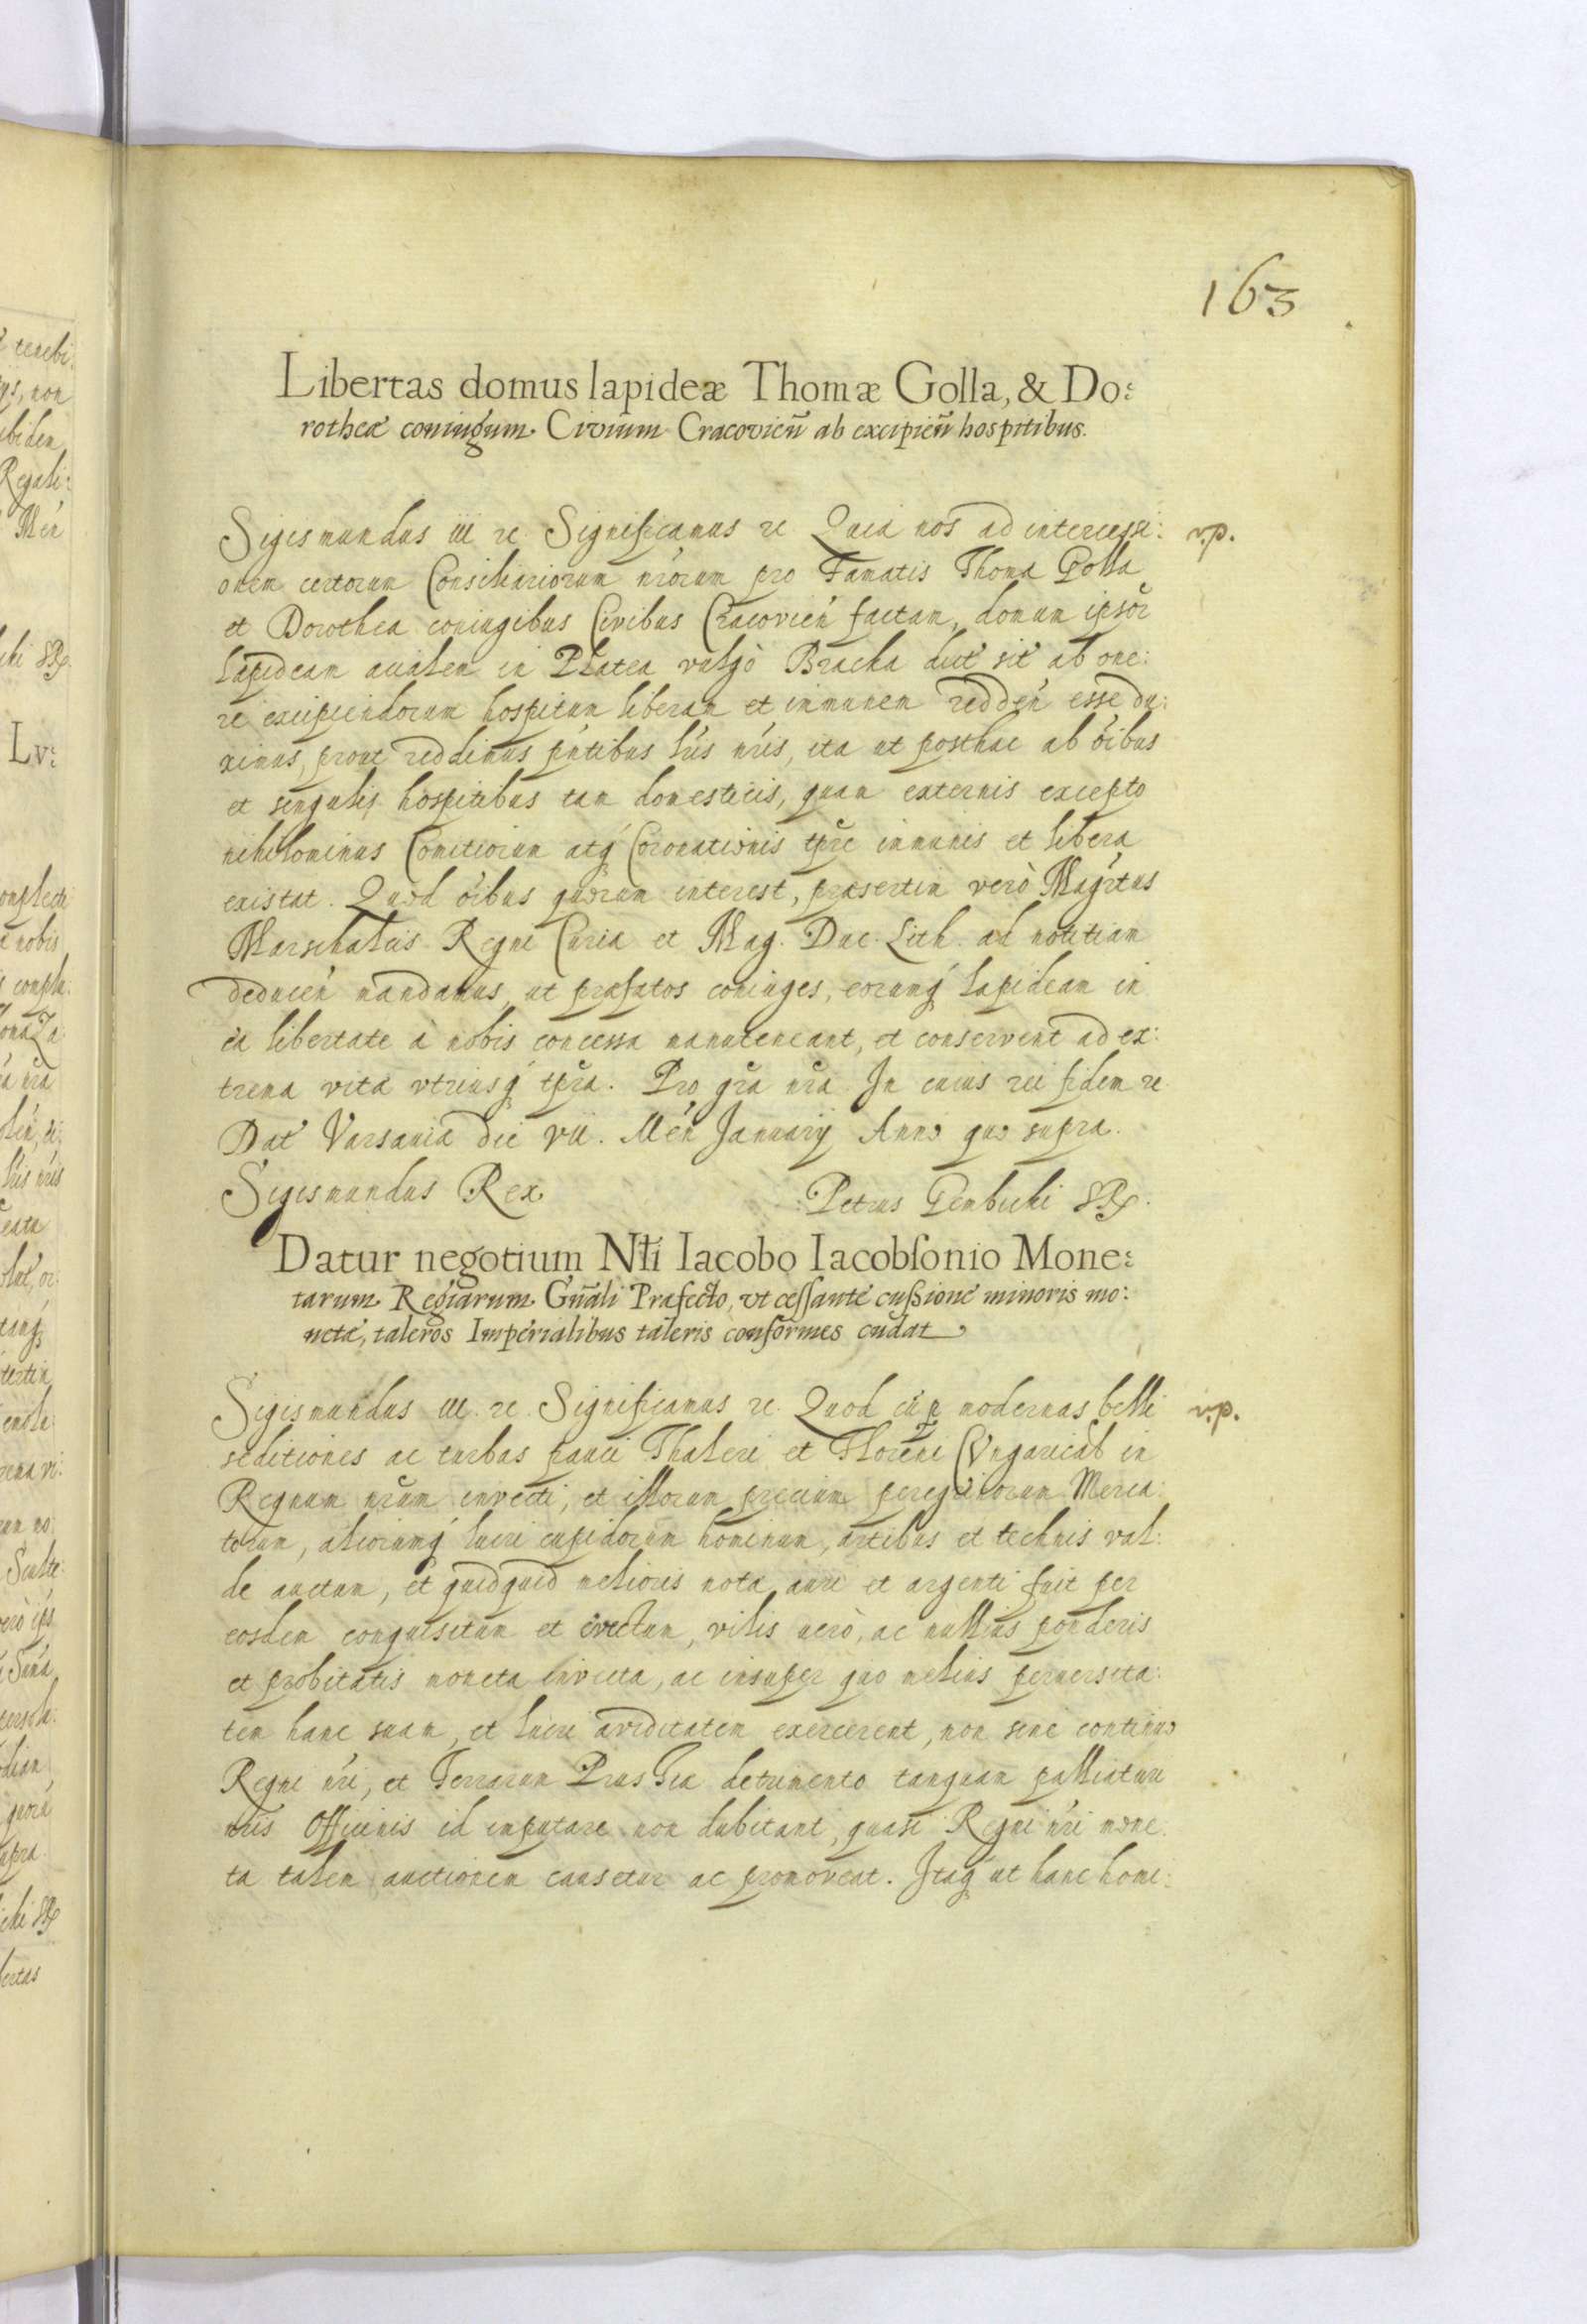 163
Libertas domus lapideæ Thomæ Golla, & Do:
rotheæ coniugum Civium Cracovień ab excipień hospitibus.
Sigismundus III rc Significamus rc Quia nos ad intercessi: v.p.
onem certorum Consiliariorum nrorum pro Famatis Thoma Golla
et Dorothea coniugibus Civibus Cracovień factam, domum ipsor
lapideam aviałem in Platea vulgò Bracka dict sit ab one:
re excipiendorum hospitum liberam et immunem redden esse du:
ximus, prout reddimus pntibus lris nris, ita ut posthac ab oibus
et singulis hospitibus tam domesticis, quam externis excepto
nihilominus Comitiorum atq Coronationis tpre immunis et libera
existat. Quod oibus quorum interest, præsertim verò Magrtus
Marschalcis Regni Curiæ et Mag. Duc. Lith. ad notitiam
deducen mandamus, ut præfatos coniuges, eorumq lapideam in
ea libertate à nobis concessa manuteneant, et conservent ad ex:
trema vitæ utriusq tpra. Pro gra nra. In cuius rei fidem rc
Dat Varsaviæ die VII. Men January Anno quo supra.
Sigismundus Rex Petrus Gembicki SR.
Datur negotium Nłi Iacobo Iacobsonio Mone:
tarum Regiarum Gnali Præfecto, ut cessante cussione minoris mo:
netæ, taleros Imperialibus taleris conformes cudat
Sigismundus III. rc. Significamus rc. Quod cū p modernas belli v.p.
seditiones ac turbas pauci Thaleri et Floreni Vngaricales in
Regnum nrum invecti, et illorum precium peregrinorum Merca:
torum, aliorumq lucri cupidorum hominum, artibus et technis val:
de auctum, et quidquid melioris notæ auri et argenti fuit per
eosdem conquisitum et evectum, vilis verò, ac nullius ponderis
et probitatis moneta invecta, ac insuper quo melius perversita:
tem hanc suam, et lucri aviditatem exercerent, non sine continuo
Regni nri, et Terrarum Prussiæ detrimento tanquam palliaturi
nris Officinis id imputare non dubitant, quasi Regni nri mone
ta talem auctionem causetur ac promoveat. Itaq ut hanc homi: